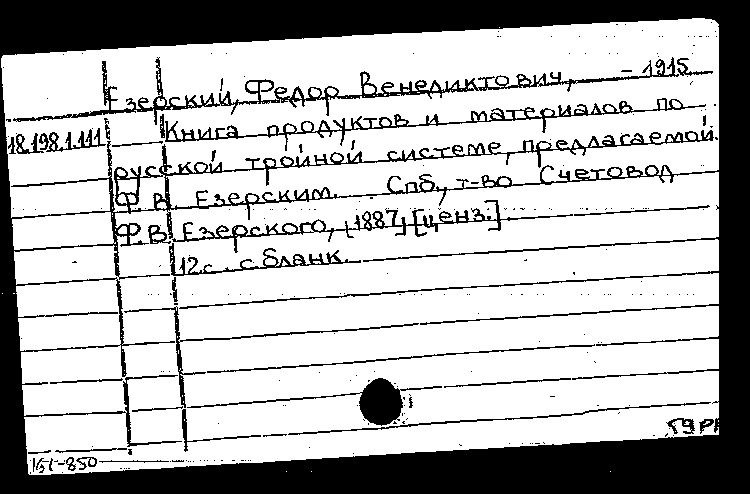 Езерский, Федор Венедиктович, - 1915
18.198.1.111 Книга продуктов и материалов по
русской тройной системе, предлагаемой
Ф. В. Езерским. Спб., т-во Счетовод
Ф.В. Езерского, [1887] [ценз.].
12 с. с бланк.